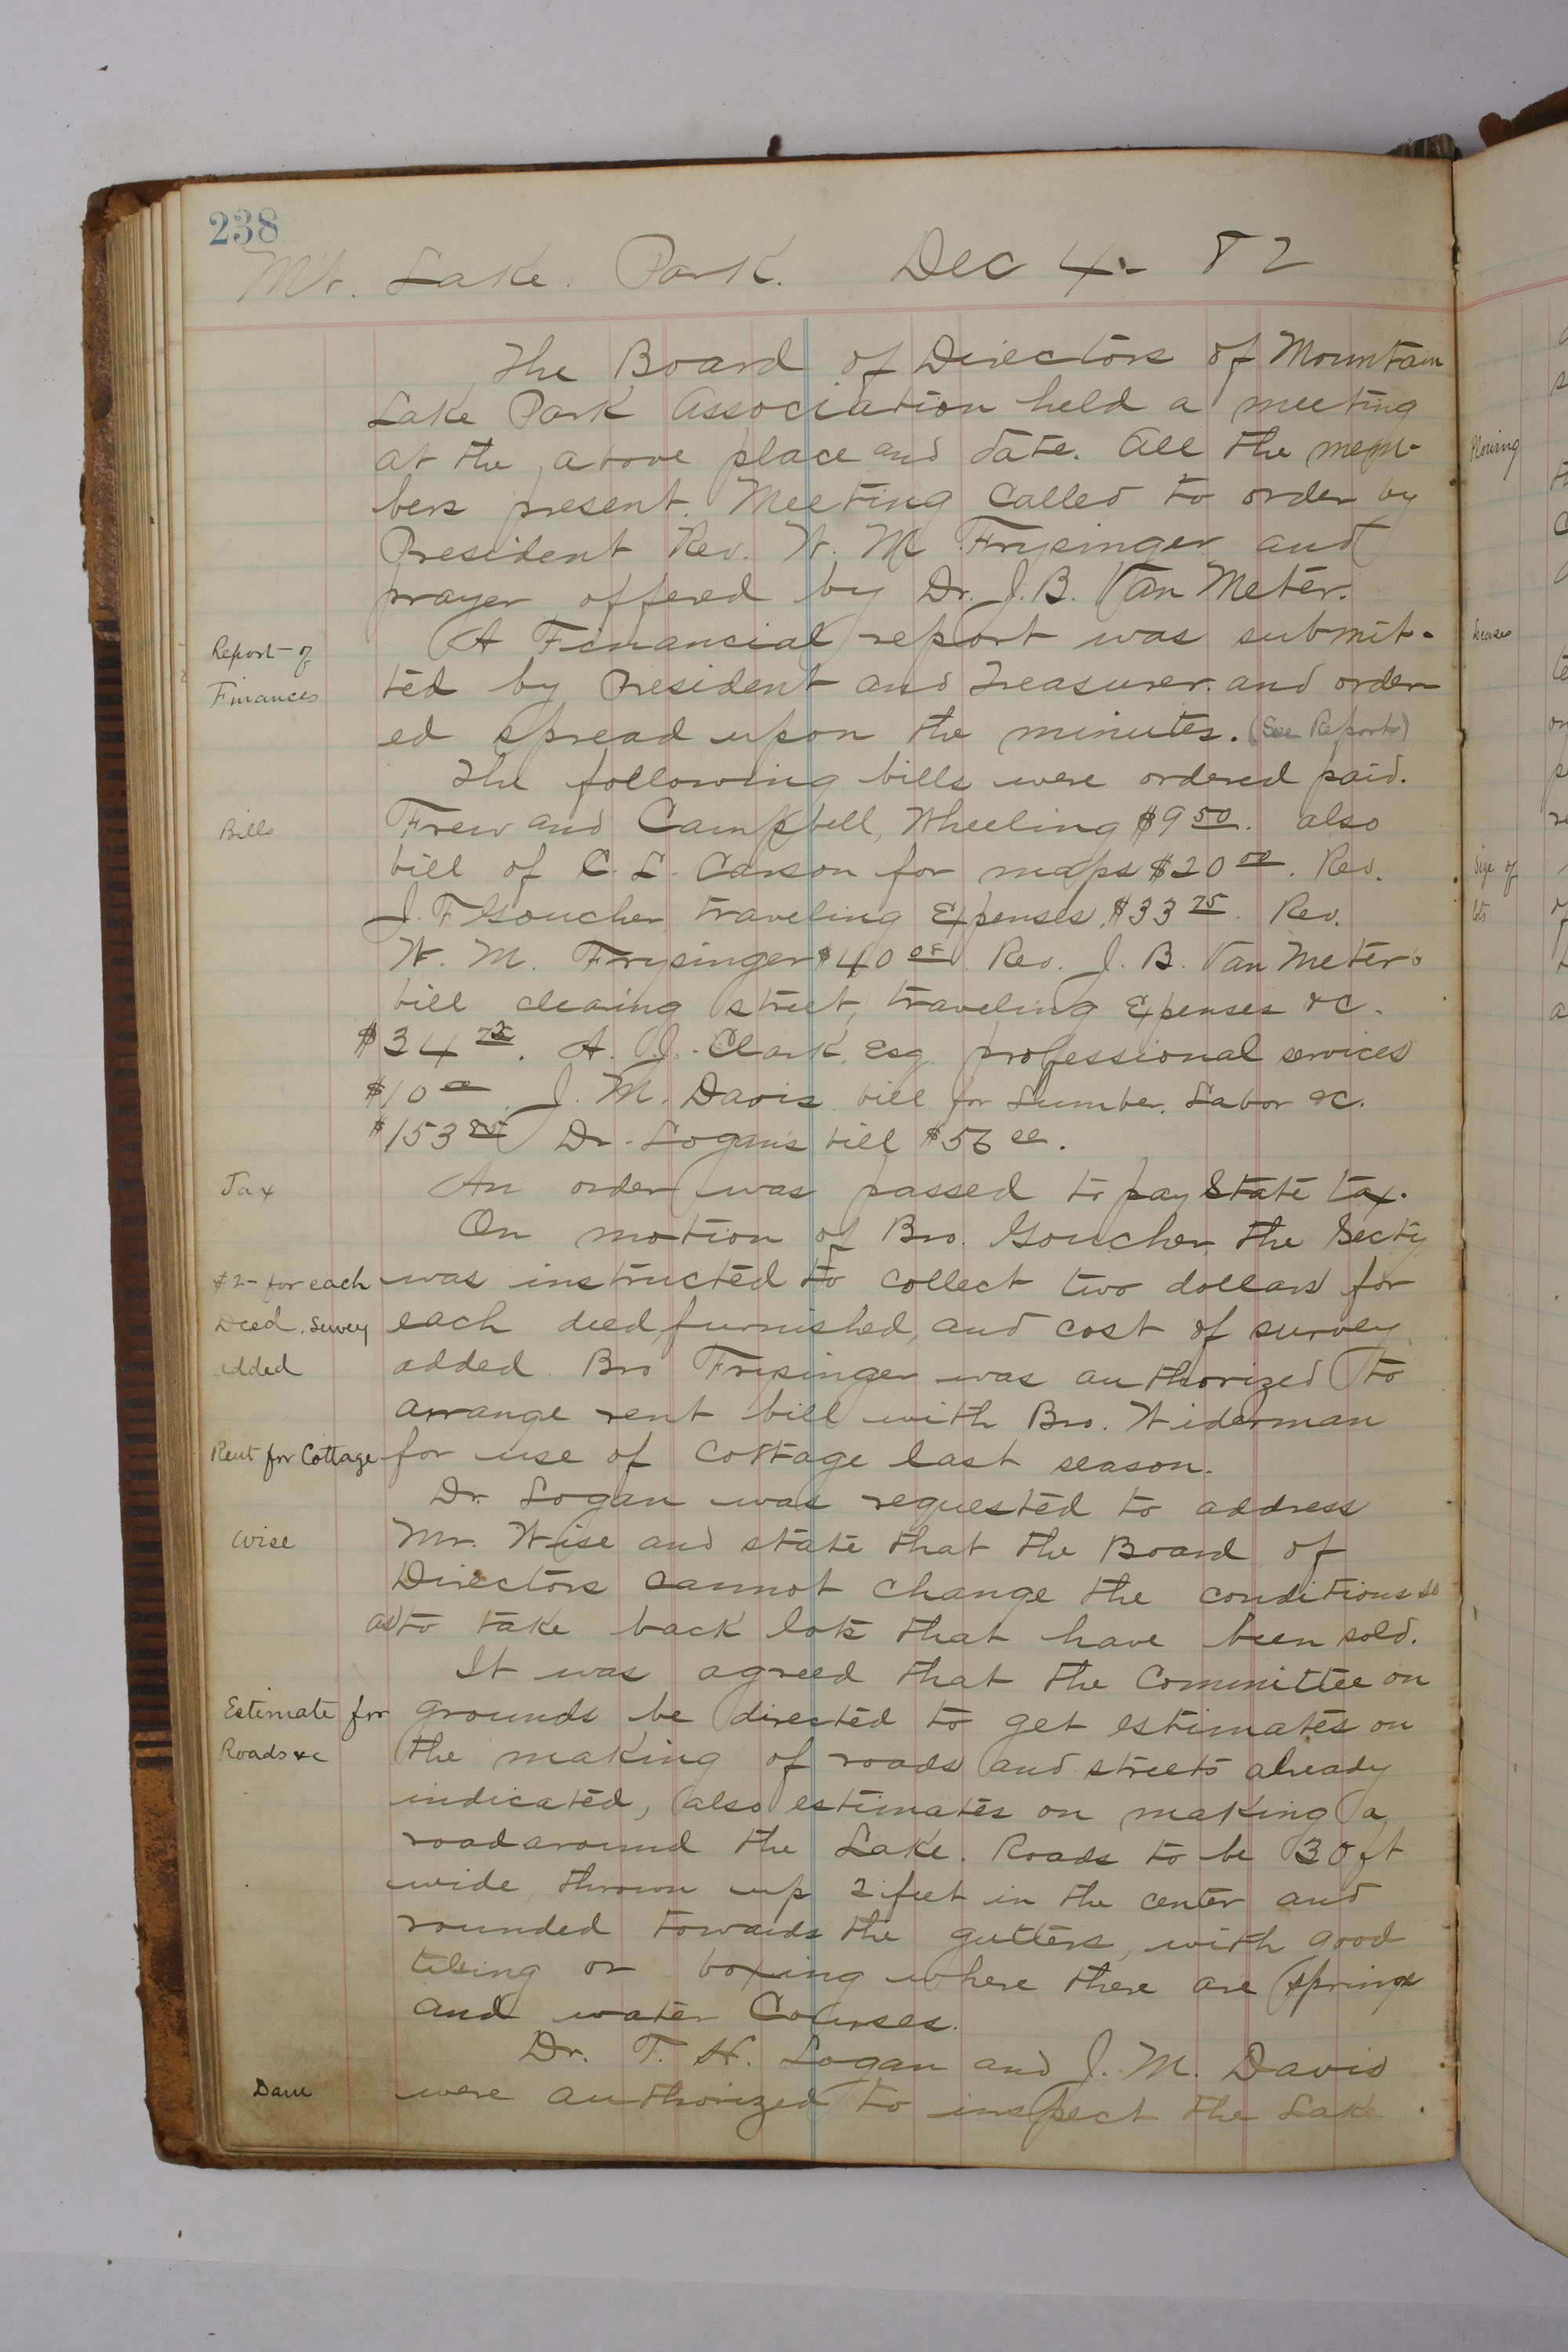 238
Mt. Lake. Park. Dec 4 - 82
The Board of Directors of Mountain
Lake Park Association held a meeting
at the above place and date. All the mem-
bers present. Meeting called to order by
President Rev. W. M Frysinger and
prayer offered by Dr. J. B. Van Meter.
Report of
Finances
A Financial report was submit-
ted by President and Treasurer and order-
ed spread upon the minutes. (See Reports)
The following bills were ordered paid.
Bills
Frew and Campbell, Wheeling $9 50. also
bill of C. L. Carson for maps $20 00. Rev.
J. F Goucher traveling Expenses $33 75. Rev.
W. M. Frysinger $40 08. Rev. J. B. Van Meter's
bill clearing street, traveling Expenses &c.
$34 75. A. J. Clark, Esq. professional services
$10 00 J. M. Davis bill for Lumber, Labor &c.
$153 85 Dr. Logan's bill $56 00.
Tax
An order was passed to pay State tax.
On motion of Bro. Goucher the Secty
$2- for each
Deed. Survey
added
was instructed to collect two dollars for
each deed furnished, and cost of survey
added. Bro Frysinger was authorized to
arrange rent bill with Bro. Widerman
Rent for Cottage
for use of Cottage last season.
Dr. Logan was requested to address
Wise
Mr. Wise and state that the Board of
Directors cannot change the conditions so
as to take back lots that have been sold.
It was agreed that the Committee on
Estimate for
Roads &c
grounds be directed to get estimates on
the making of roads and streets already
indicated, also estimates on making a
road around the Lake. Roads to be 30 ft
wide, thrown up 2 feet in the center and
rounded towards the gutters, with good
tileing or boxing where there are springs
and water Courses.
Dr. T. H. Logan and J. M. Davis
Dam
were authorized to inspect the Lake.
Leases
Size of
lots